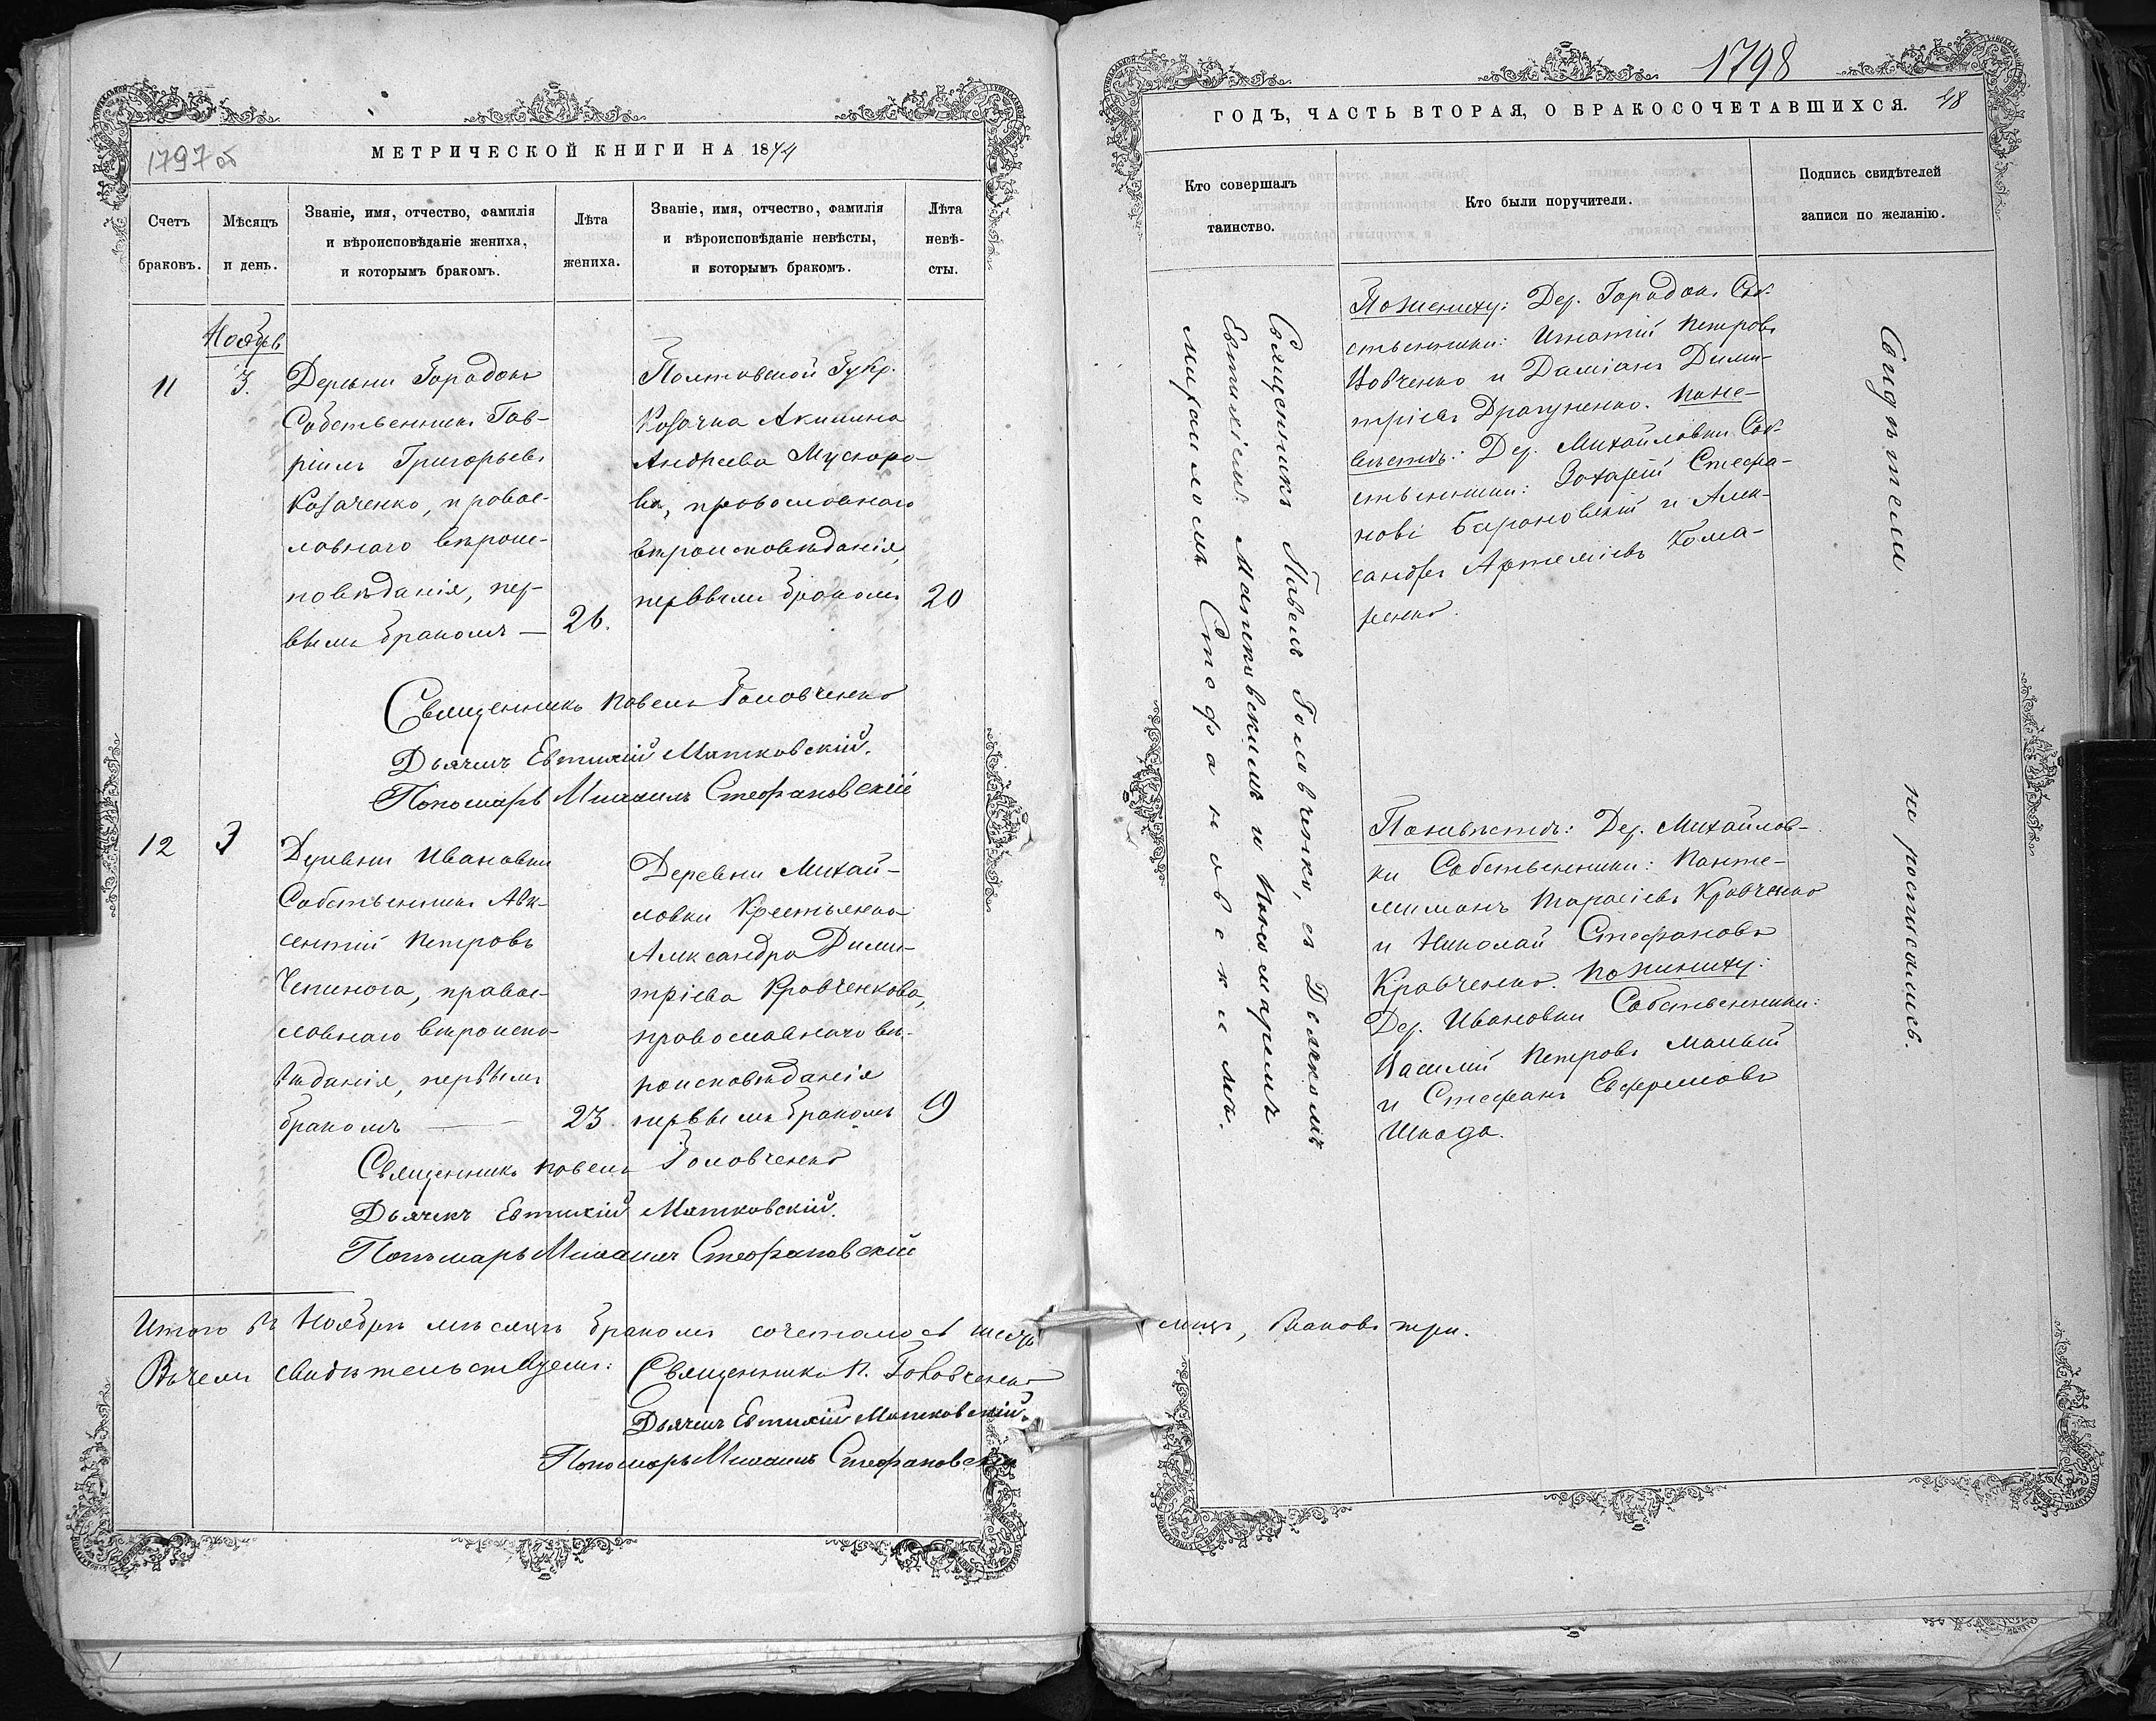 1797 об
МЕТРИЧЕСКОЙ КНИГИ НА 1874
Счетъ
браковъ.
Мѣсяцъ
и день.
Званіе, имя, отчество, фамилія
и вѣроисповѣданіе жениха,
и которымъ бракомъ.
Лѣта
жениха.
Званіе, имя, отчество, фамилія
и вѣроисповѣданіе невѣсты,
и которымъ бракомъ.
Лѣта
невѣ-
сты.
Ноябрь
11
3.
Деревни Городокъ
Собственникъ Гав-
ріилъ Григорьевъ
Козаченко, правос-
лавнаго вѣроис-
повѣданія, пер-
вымъ бракомъ —
26.
Полтавской Губер.
Козачка Акилина
Андреева Мусіоро-
ва, православнаго
вѣроисповѣданія,
первымъ бракомъ
20
Священникъ Павелъ Головченко
Дьячекъ Евтихій Матковскій.
Пономарь Михаилъ Стефановскій
12
3
Деревни Ивановки
Собственникъ Авк-
сентій Петровъ
Чепинога, правос-
лавнаго вѣроиспо-
вѣданія, первымъ
бракомъ —
23.
Деревни Михай-
ловки Крестьянка
Александра Дими-
тріева Кравченкова,
православнаго вѣ-
роисповѣданія
первымъ бракомъ
19
Священникъ Павелъ Головченко
Дьячекъ Евтихій Матковскій.
Пономарь Михаилъ Стефановскій
Итого въ Ноябрѣ мѣсяцѣ бракомъ сочеталось шесть
Въ чемъ свидѣтельствуемъ:
Священникъ П. Головченко
Дьячекъ Евтихій Матковскій.
Пономарь Михаилъ Стефановскій
1798
ГОДЪ, ЧАСТЬ ВТОРАЯ, О БРАКОСОЧЕТАВШИХСЯ.
48
Кто совершалъ
таинство.
Кто были поручители.
Подпись свидѣтелей
записи по желанію.
Священникъ Павелъ Головченко, съ Дьячкомъ
Евтихіемъ Матковскимъ и Пономаремъ
Михаиломъ Стефановскимъ.
По жениху: Дер. Городокъ Соб-
ственники: Игнатій Петровъ
Вовченко и Даміанъ Дими-
тріевъ Драгуненко. По не-
вѣстѣ: Дер. Михайловки Соб-
ственники: Захарій Стефа-
новъ Барановскій и Алек-
сандръ Артеміевъ Гома-
ненко.
По невѣстѣ: Дер. Михайлов-
ки Собственники: Панте-
лимонъ Тарасіевъ Кравченко
и Николай Стефановъ
Кравченко. По жениху:
Дер. Ивановки Собственники:
Василій Петровъ Малый
и Стефанъ Ефремовъ
Шкода.
Свидѣтели
не росписались.
лицъ, браковъ три.